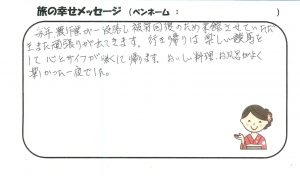 旅の幸せメッセージ（ペンネーム：　　　　　）
毎年農作業が一段落し疲労回復のため来館させていただ
きまた頑張りが出てきます。行き帰りは楽しい競馬を
して心とサイフが軽くて帰ります。おいしい料理お風呂がよく
楽しかった一夜でした。